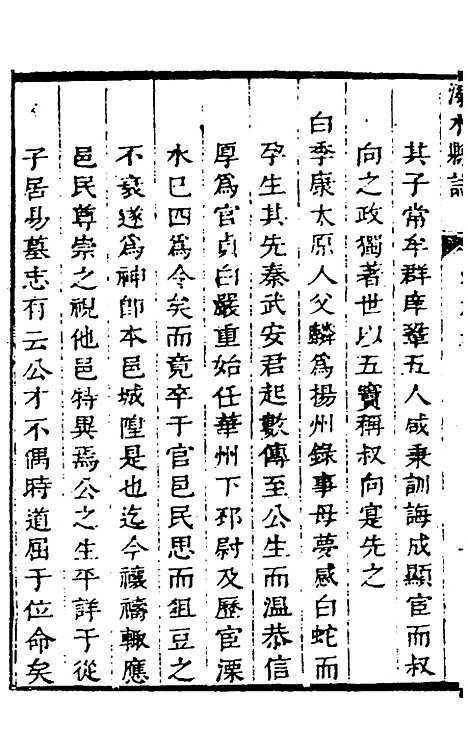 溧水縣誌
其子常牟群庠鞏五人咸秉訓誨成顯宦而叔
向之政獨著世以五寶稱叔向寔先之
白季康太原人父鏻爲揚州錄事母夢感白蛇而
孕生其先秦武安君起數傳至公生而溫恭信
厚爲官貞白嚴重始任華州下邽尉及歷宦溧
水巳四爲令矣而竟卒于官邑民思而俎豆之
不衰遂爲神郎本邑城隍是也迄今禳禱輙應
邑民尊崇之視他邑特異焉公之生平詳于從
子居易墓志有云公才不偶時道屈于位命矣